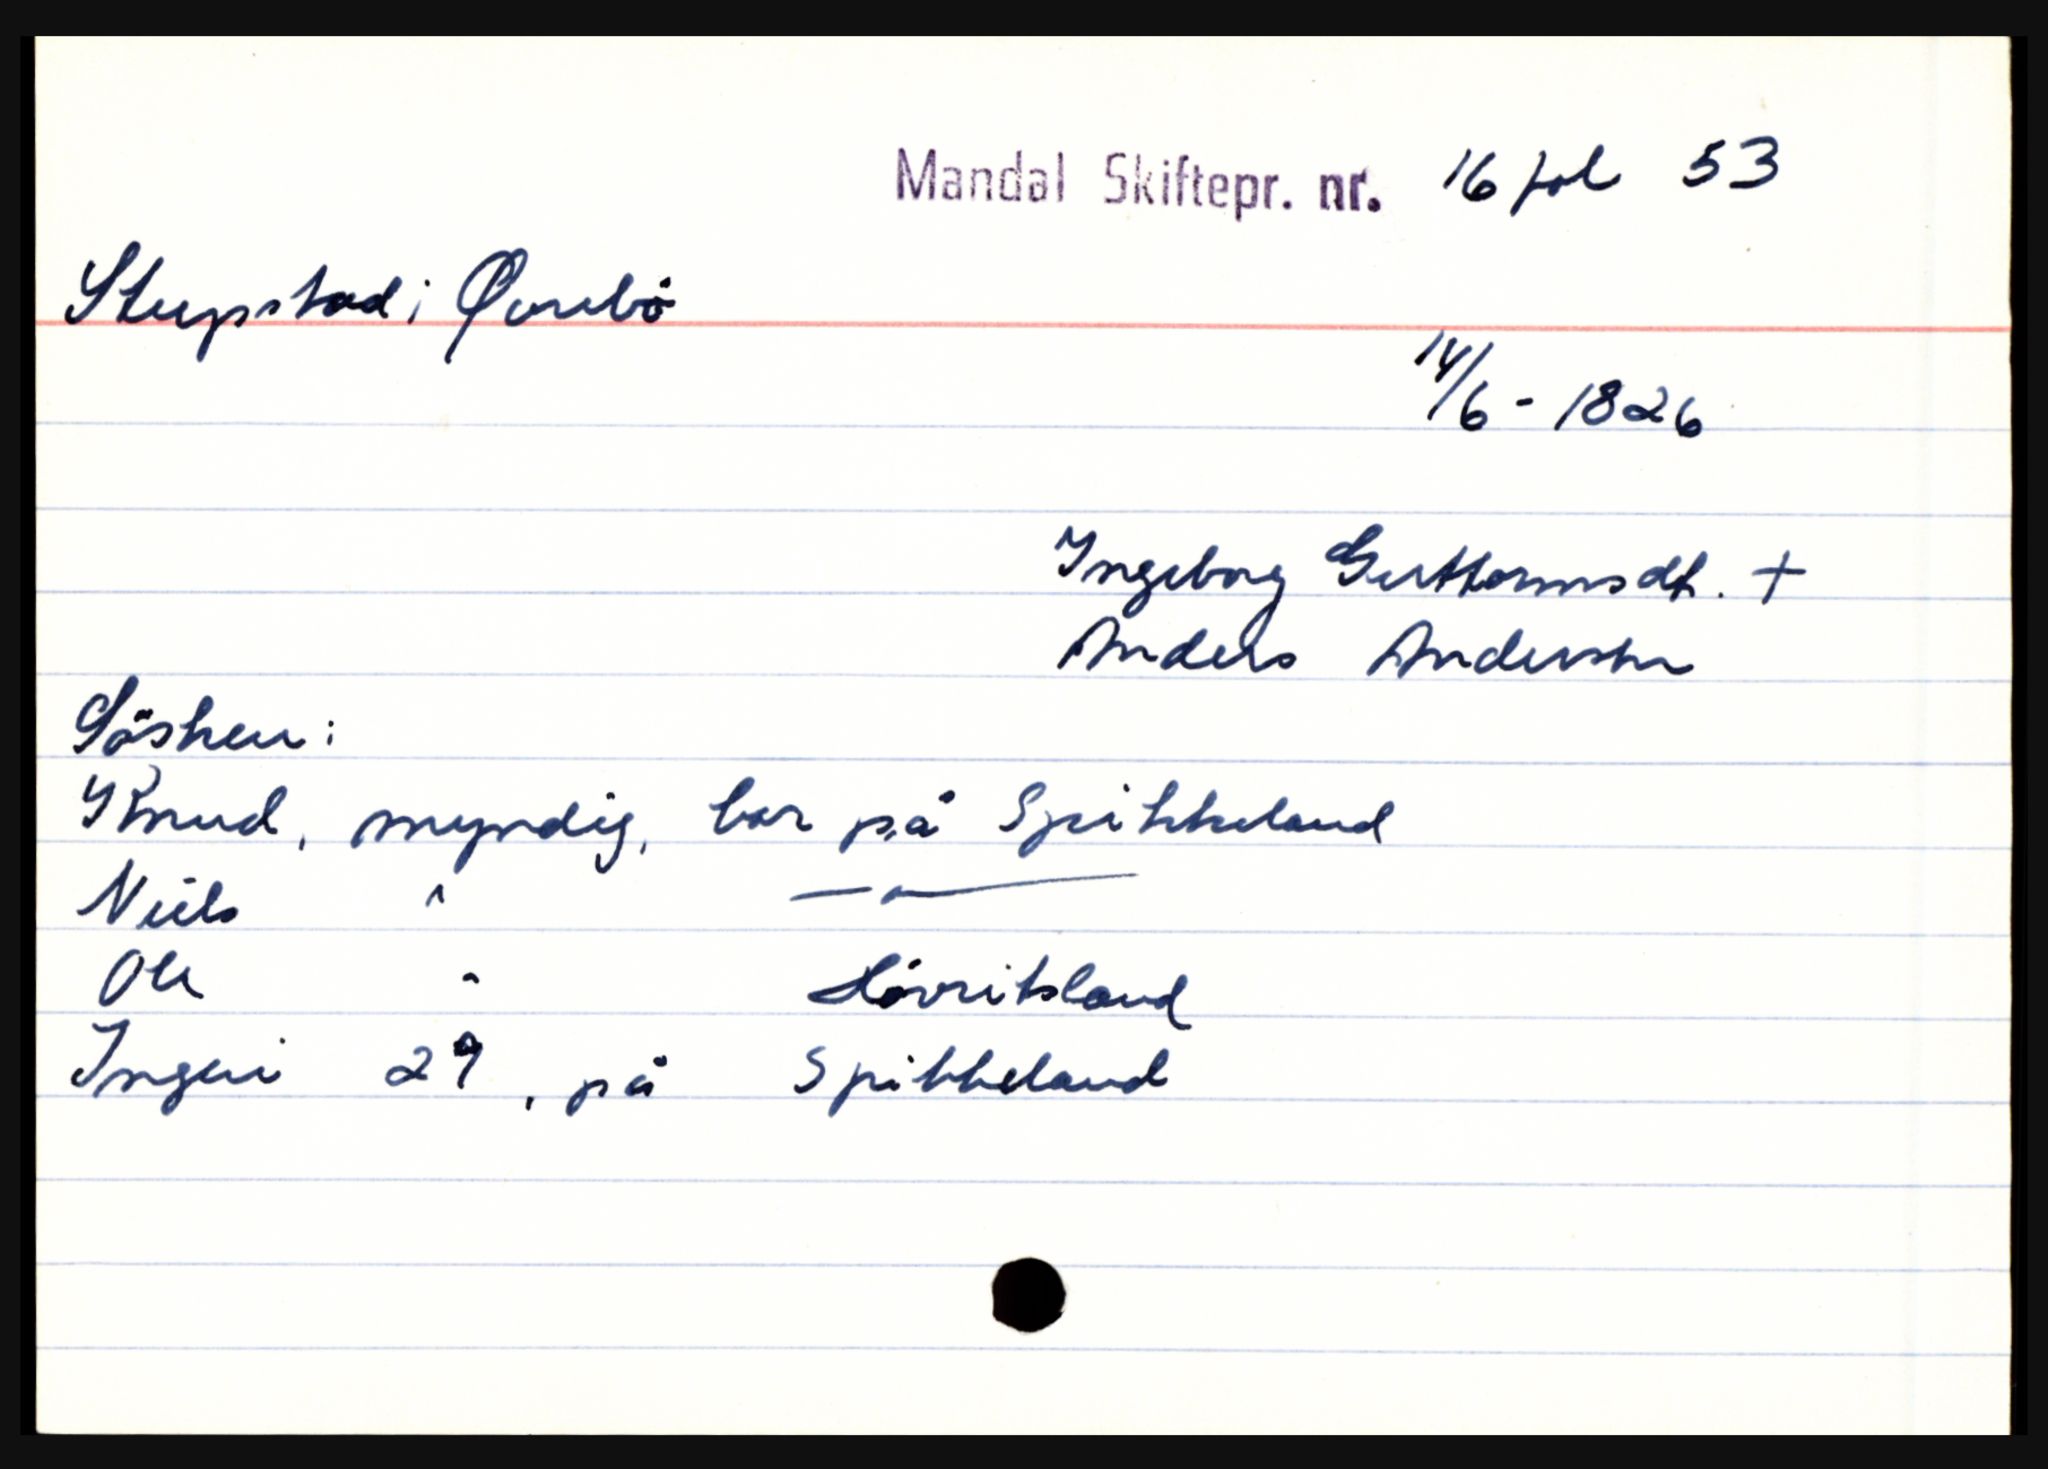 Mandal Skiftepr. nr. 16 fol 53
Stupstad i Øvrebö
14/6 - 1826
Ingeborg Guttormsdt. +
Anders Andersen
Söshen:
Knud, myndig, bor på Spikkeland
Niels " — " —
Ole "
Ingeri 29, på Spikkeland